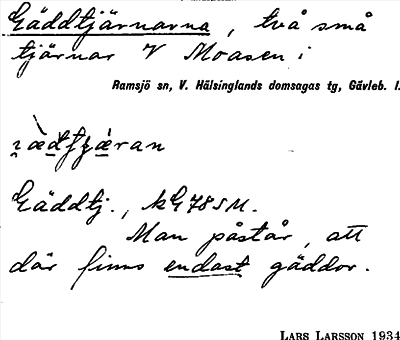 Gäddtjärnarna, två små
tjärnar V Moasen i
Ramsjö sn, V. Hälsinglands domsagas tg, Gävleb. l.
Gäddtj., kG78SM.
Man påstår, att
där finns endast gäddor.
LARS LARSSON 1934